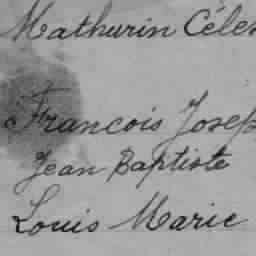 Mathurin Céles
Francois Josep
Jean Baptiste
Louis Marie